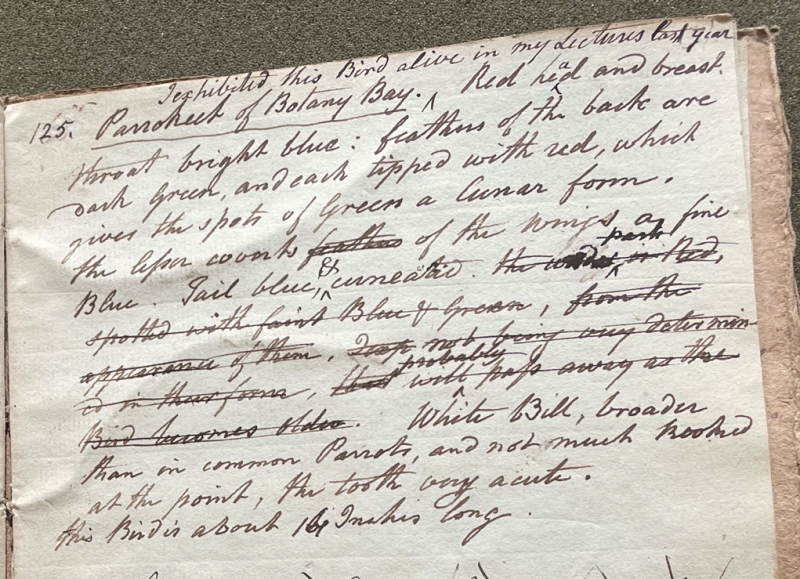 I exhibited this Bird alive in my Lectures last year
125. Parrokeet of Botany Bay. ^ Red head and breast.
throat bright blue: feathers of the back are
Dark Green, and each tipped with red, which
gives the spots of Green a Lunar form.
the lesser coverts feathers of the wings a fine
park
Blue. Tail blue, & cuneated. the under in Red,
spotted with faint Blue & Green, from the
appearance of them, I not being very determin-
ed in their form, that probably will pass away as the
Bird becomes older. White Bill, broader
than in common Parrots, and not much hooked
at the point, the tooth very acute.
this Bird is about 14 Inches long.